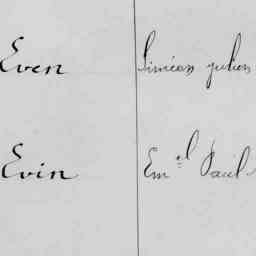 Even Siméon julien
Evin Em.el Paul